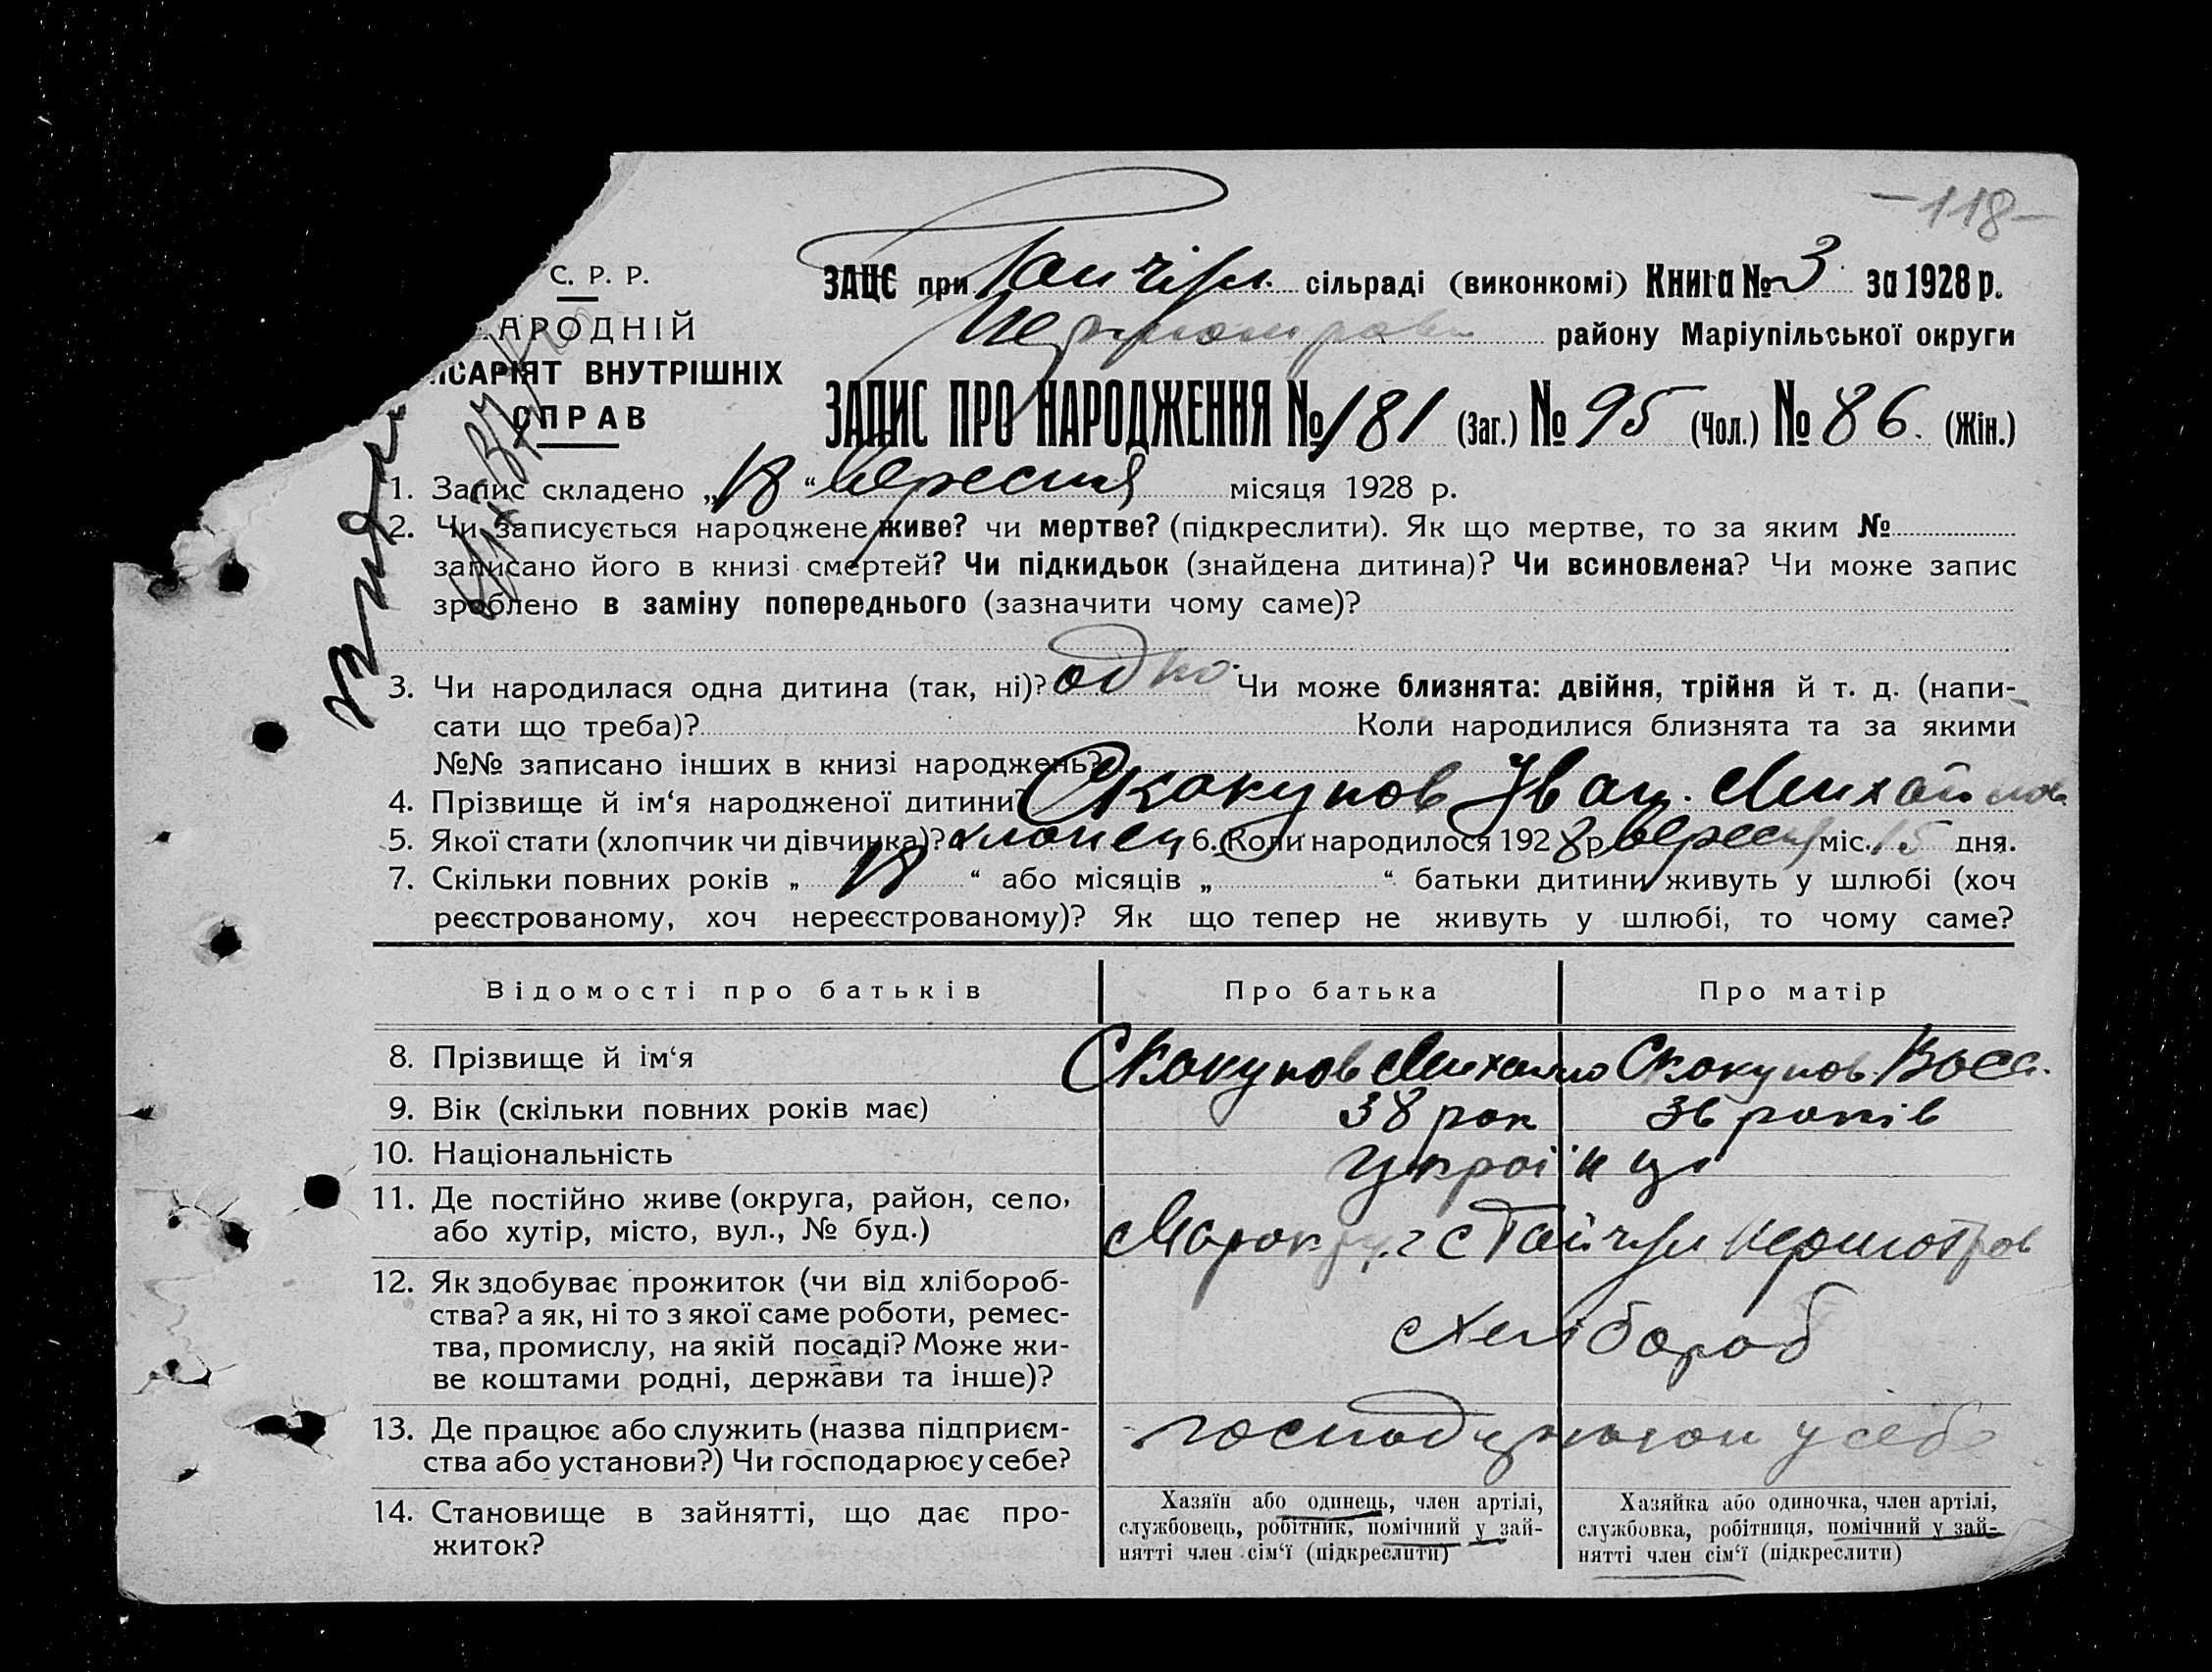 -118-
С. Р. Р.
ЗАЦС при Гайчул. сільраді (виконкомі) Книга № 3 за 1928 р.
АРОДНІЙ
району Маріупільської округи
ІСАРІЯТ ВНУТРІШНІХ
СПРАВ
ЗАПИС ПРО НАРОДЖЕННЯ № 181 (Заг.) № 95 (Чол.) № 86. (Жін.)
1. Запис складено „18“ Вересня місяця 1928 р.
2. Чи записується народжене живе? чи мертве? (підкреслити). Як що мертве, то за яким №
записано його в книзі смертей? Чи підкидьок (знайдена дитина)? Чи всиновлена? Чи може запис
зроблено в заміну попереднього (зазначити чому саме)?
3. Чи народилася одна дитина (так, ні)? одно. Чи може близнята: двійня, трійня й т. д. (напи-
сати що треба)? Коли народилися близнята та за якими
№№ записано інших в книзі народжень?
4. Прізвище й ім‘я народженої дитини? Скакунов Іван. Михайлов
5. Якої стати (хлопчик чи дівчинка)? хлопец 6. Коли народилося 1928 р. Вересня міс. 15 дня.
7. Скільки повних років „18“ або місяців „ “ батьки дитини живуть у шлюбі (хоч
реєстрованому, хоч нереєстрованому)? Як що тепер не живуть у шлюбі, то чому саме?
Відомості про батьків Про батька Про матір
8. Прізвище й ім‘я Скакунов Михайло Скакунов. Васс.
9. Вік (скільки повних років має) 38 рок 36 років
10. Національність Українці
11. Де постійно живе (округа, район, село,
або хутір, місто, вул., № буд.) с Гайчул
12. Як здобуває прожиток (чи від хлібороб-
ства? а як, ні то з якої саме роботи, ремес-
тва, промислу, на якій посаді? Може жи-
ве коштами родні, держави та інше)?
Хлібороб
13. Де працює або служить (назва підприєм-
ства або установи?) Чи господарює у себе?
у себе
14. Становище в зайнятті, що дає про-
житок?
Хазяїн або одинець, член артілі,
службовець, робітник, помічний у зай-
нятті член сім‘ї (підкреслити)
Хазяйка або одиночка, член артілі,
службовка, робітниця, помічний у зай-
нятті член сім‘ї (підкреслити)